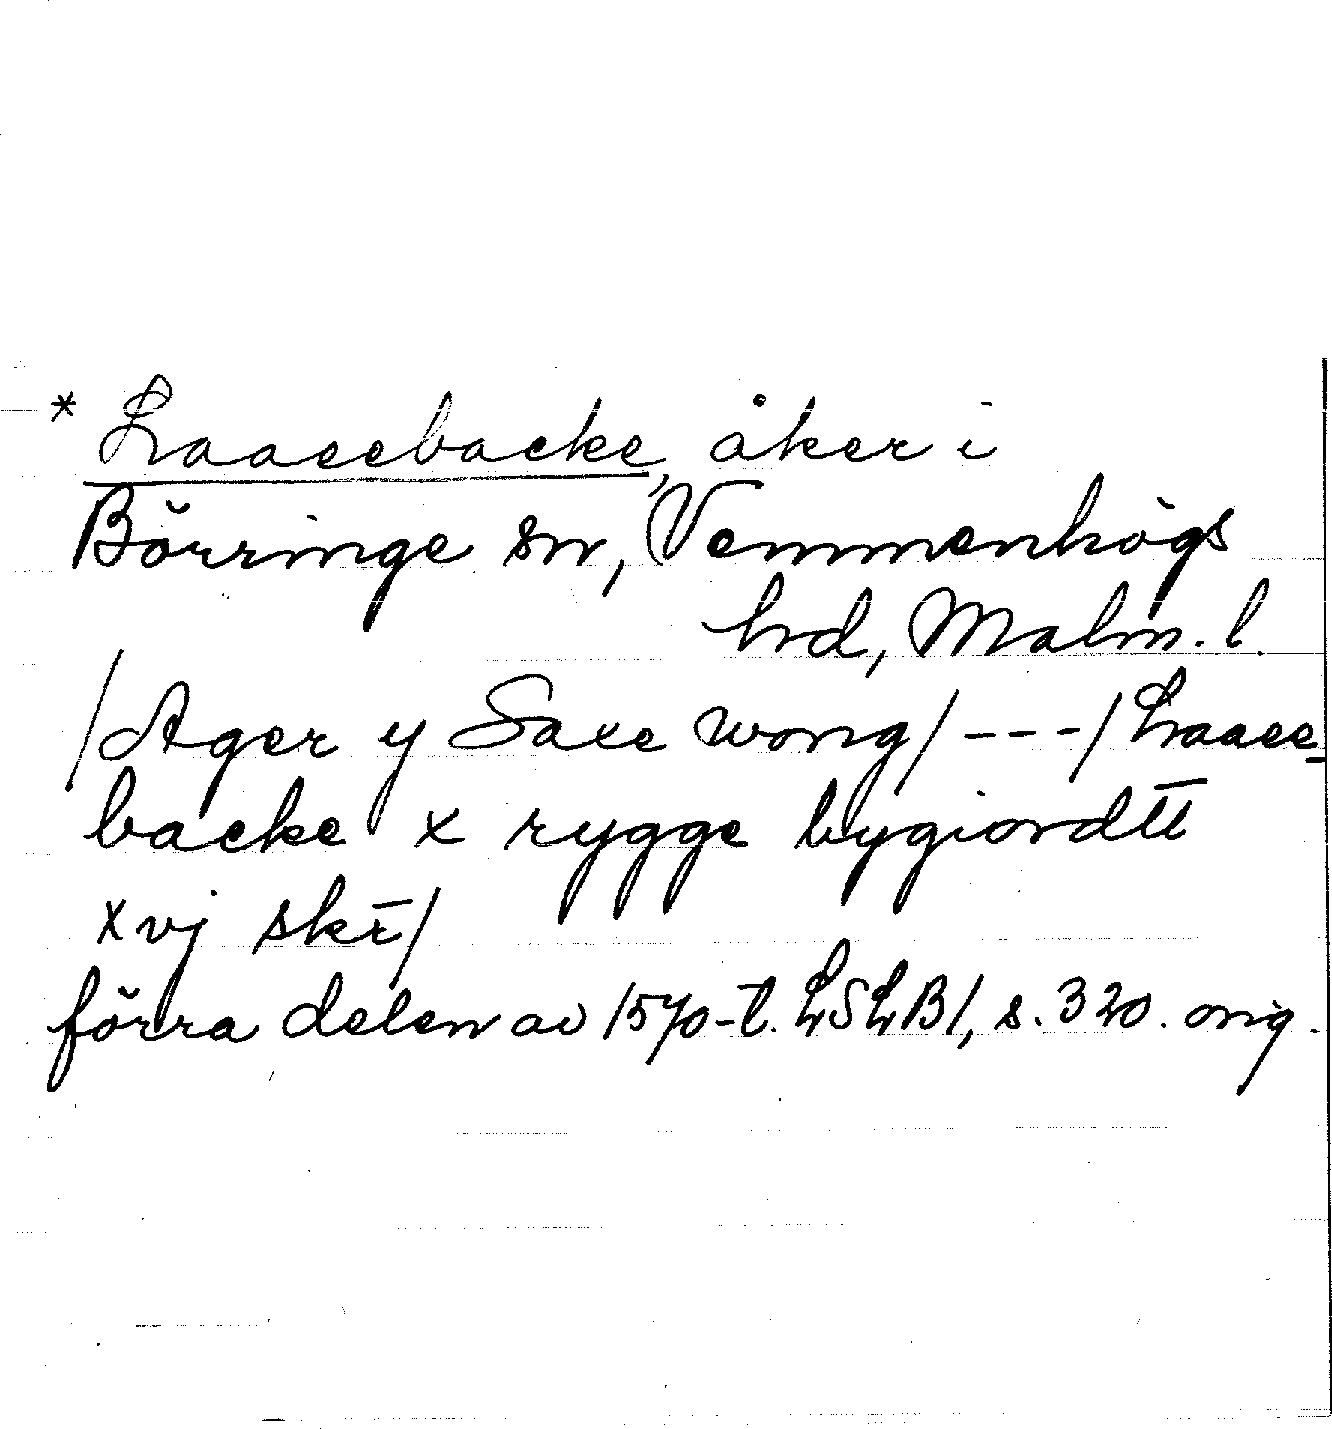 * Laaeebacke, åker i
Börringe sn, Vemmenhögs
hrd, Malm. l.
/Ager y Saxe wong/ --- / Laaee-
backe x rygge bygiordtt
xvj skr̄/
förra delen av 1570-t. LSLB1, s. 320. orig.